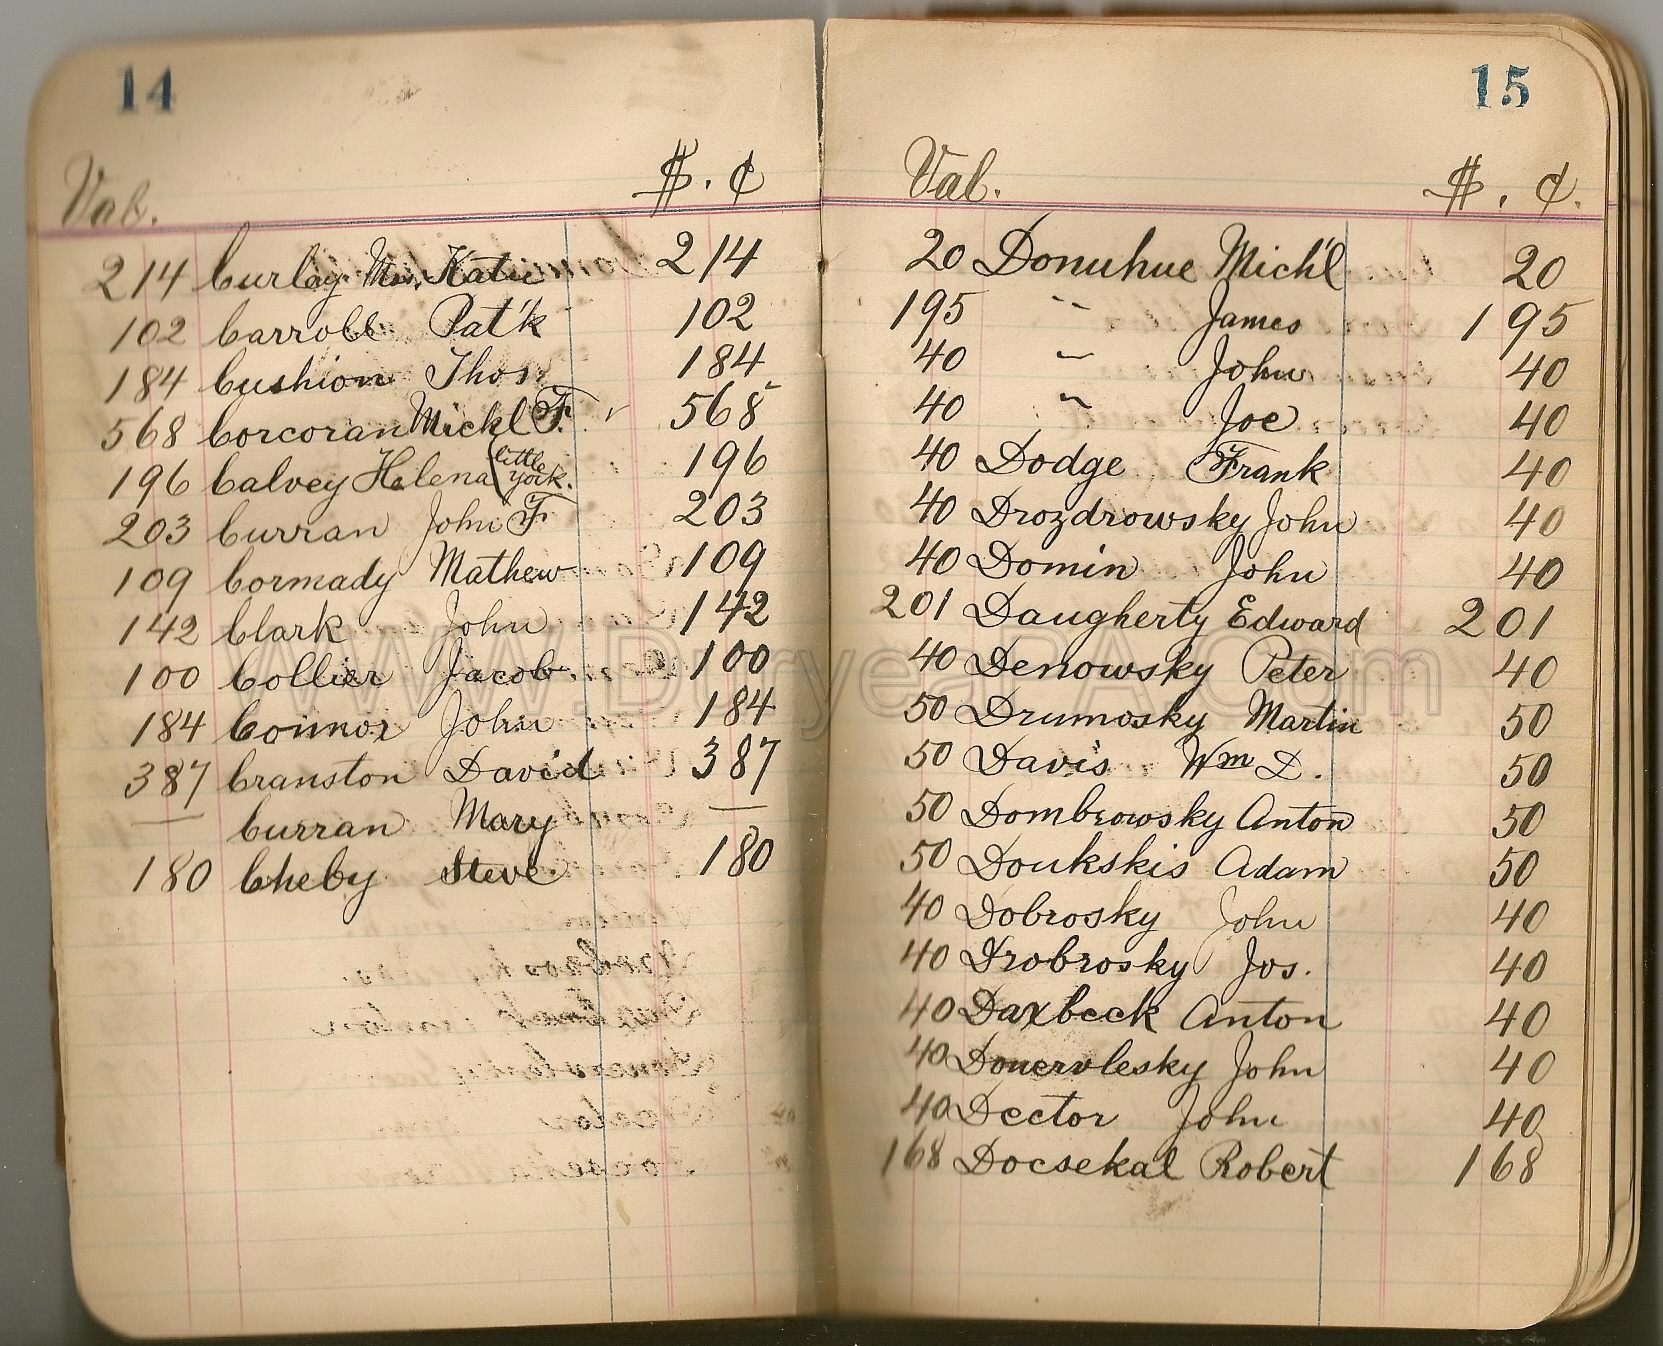 14
Val. $. ¢
214 Curley Mrs. Katie 214
102 Carroll Pat'k 102
184 Cushion Thos. 184
568 Corcoran Michl F. 568
196 Calvey Helena (Little York. 196
203 Curran John F 203
109 Cormady Mathew 109
142 Clark John 142
100 Collier Jacob. 100
184 Connor John 184
387 Cranston David 387
— Curran Mary —
180 Cheby Steve 180
15
Val. $. ¢.
20 Donuhue Mich'l 20
195 " James 195
40 " John 40
40 " Joe 40
40 Dodge Frank 40
40 Drozdrowsky John 40
40 Domin John 40
201 Daugherty Edward 201
40 Denowsky Peter 40
50 Drumosky Martin 50
50 Davis Wm D. 50
50 Dombrowsky Anton 50
50 Doukskis Adam 50
40 Dobrosky John 40
40 Drobrosky Jos. 40
40 Daxbeck Anton 40
40 Donervlesky John 40
40 Dector John 40
168 Docsekal Robert 168
www.DuryeaPA.com